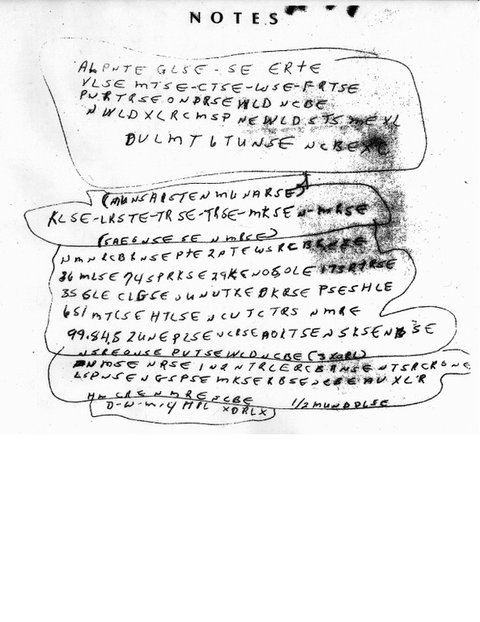 NOTES
ALPNTE GLSE-SE ERTE
VLSE MTSE-CTSE-WSE-FRTSE
PURTRSEONDRSEWLD NCBE
NWLDXLRCMSP NEWLDSTSMEXL
DULMT6TUNSE NCBEXC
(MUNSAISTENMUNARSE)
KLSE-LRSTE-TRSE-TRSE-MKSEN-MRSE
(SAEGNSESE NMRSE)
NMNRCBRNSEPTE2PTEWSRCBRNSE
36MLSE74SPRKSE29KENOSOLE173RTRSE
35GLECLGSEUNUTXEDKRSEPSESHLE
651MTCSEHTLSENCUTCTRSNMRE
99.84.52UNEPLSENCRSEAOLTSENSKSENBSE
NSREONSE PUTSEWLDNCBE(3XORL)
NMSENRSEINRNTRLERCBRNSENTSRCRONE
LSPNSENGSPSEMKSERBSENCBEAUXLR
HMCRENMRENCBE 1/2MUNDDLSE
D-W-M-4HPL XDRLX